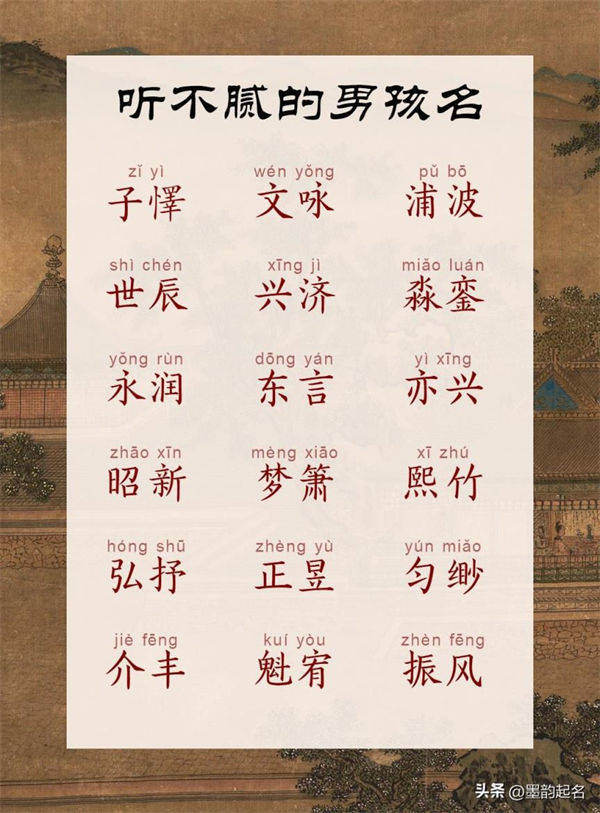 听不腻的男孩名
zǐ yì wén yǒng pǔ bō
子怿 文咏 浦波
shì chén xīng jì miǎo luán
世辰 兴济 淼銮
yǒng rùn dōng yán yì xīng
永润 东言 亦兴
zhāo xīn mèng xiāo xī zhú
昭新 梦箫 熙竹
hóng shū zhèng yù yún miǎo
弘抒 正昱 匀缈
jiè fēng kuí yòu zhèn fēng
介丰 魁宥 振风
头条 @墨韵起名